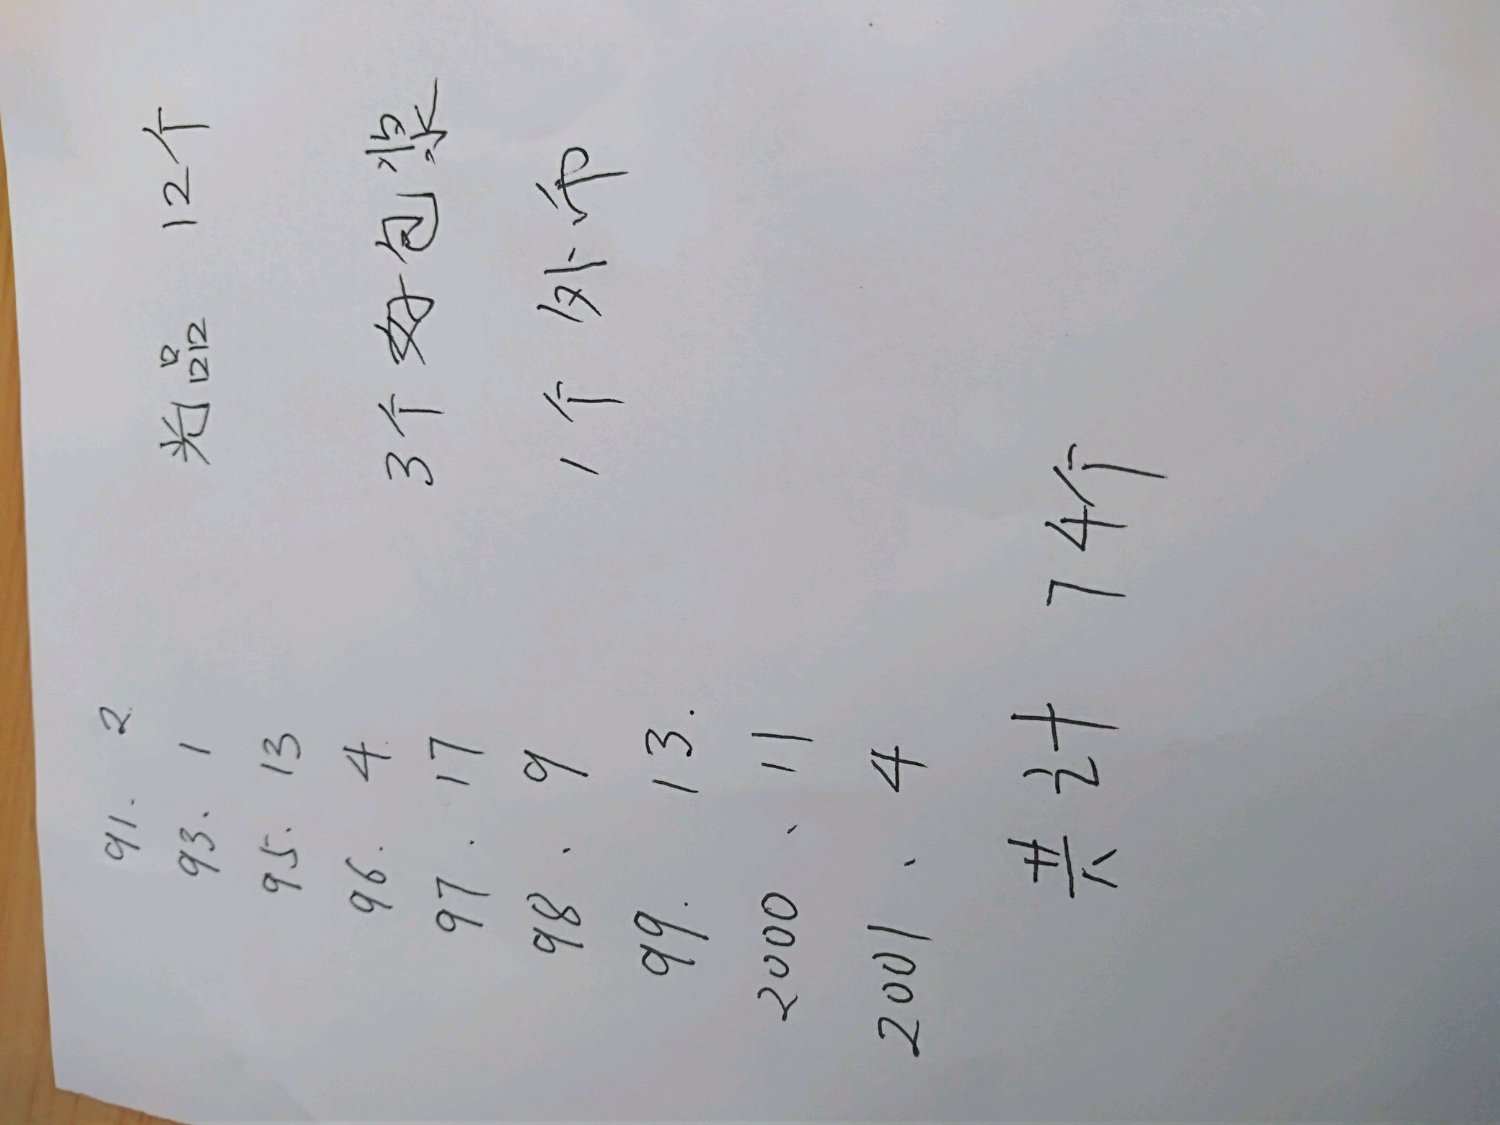 91. 2
93. 1
95. 13
96. 4
97. 17
98. 9
99. 13.
2000、11
2001、4
共计 74个
品 12个
3个好包装
1个外